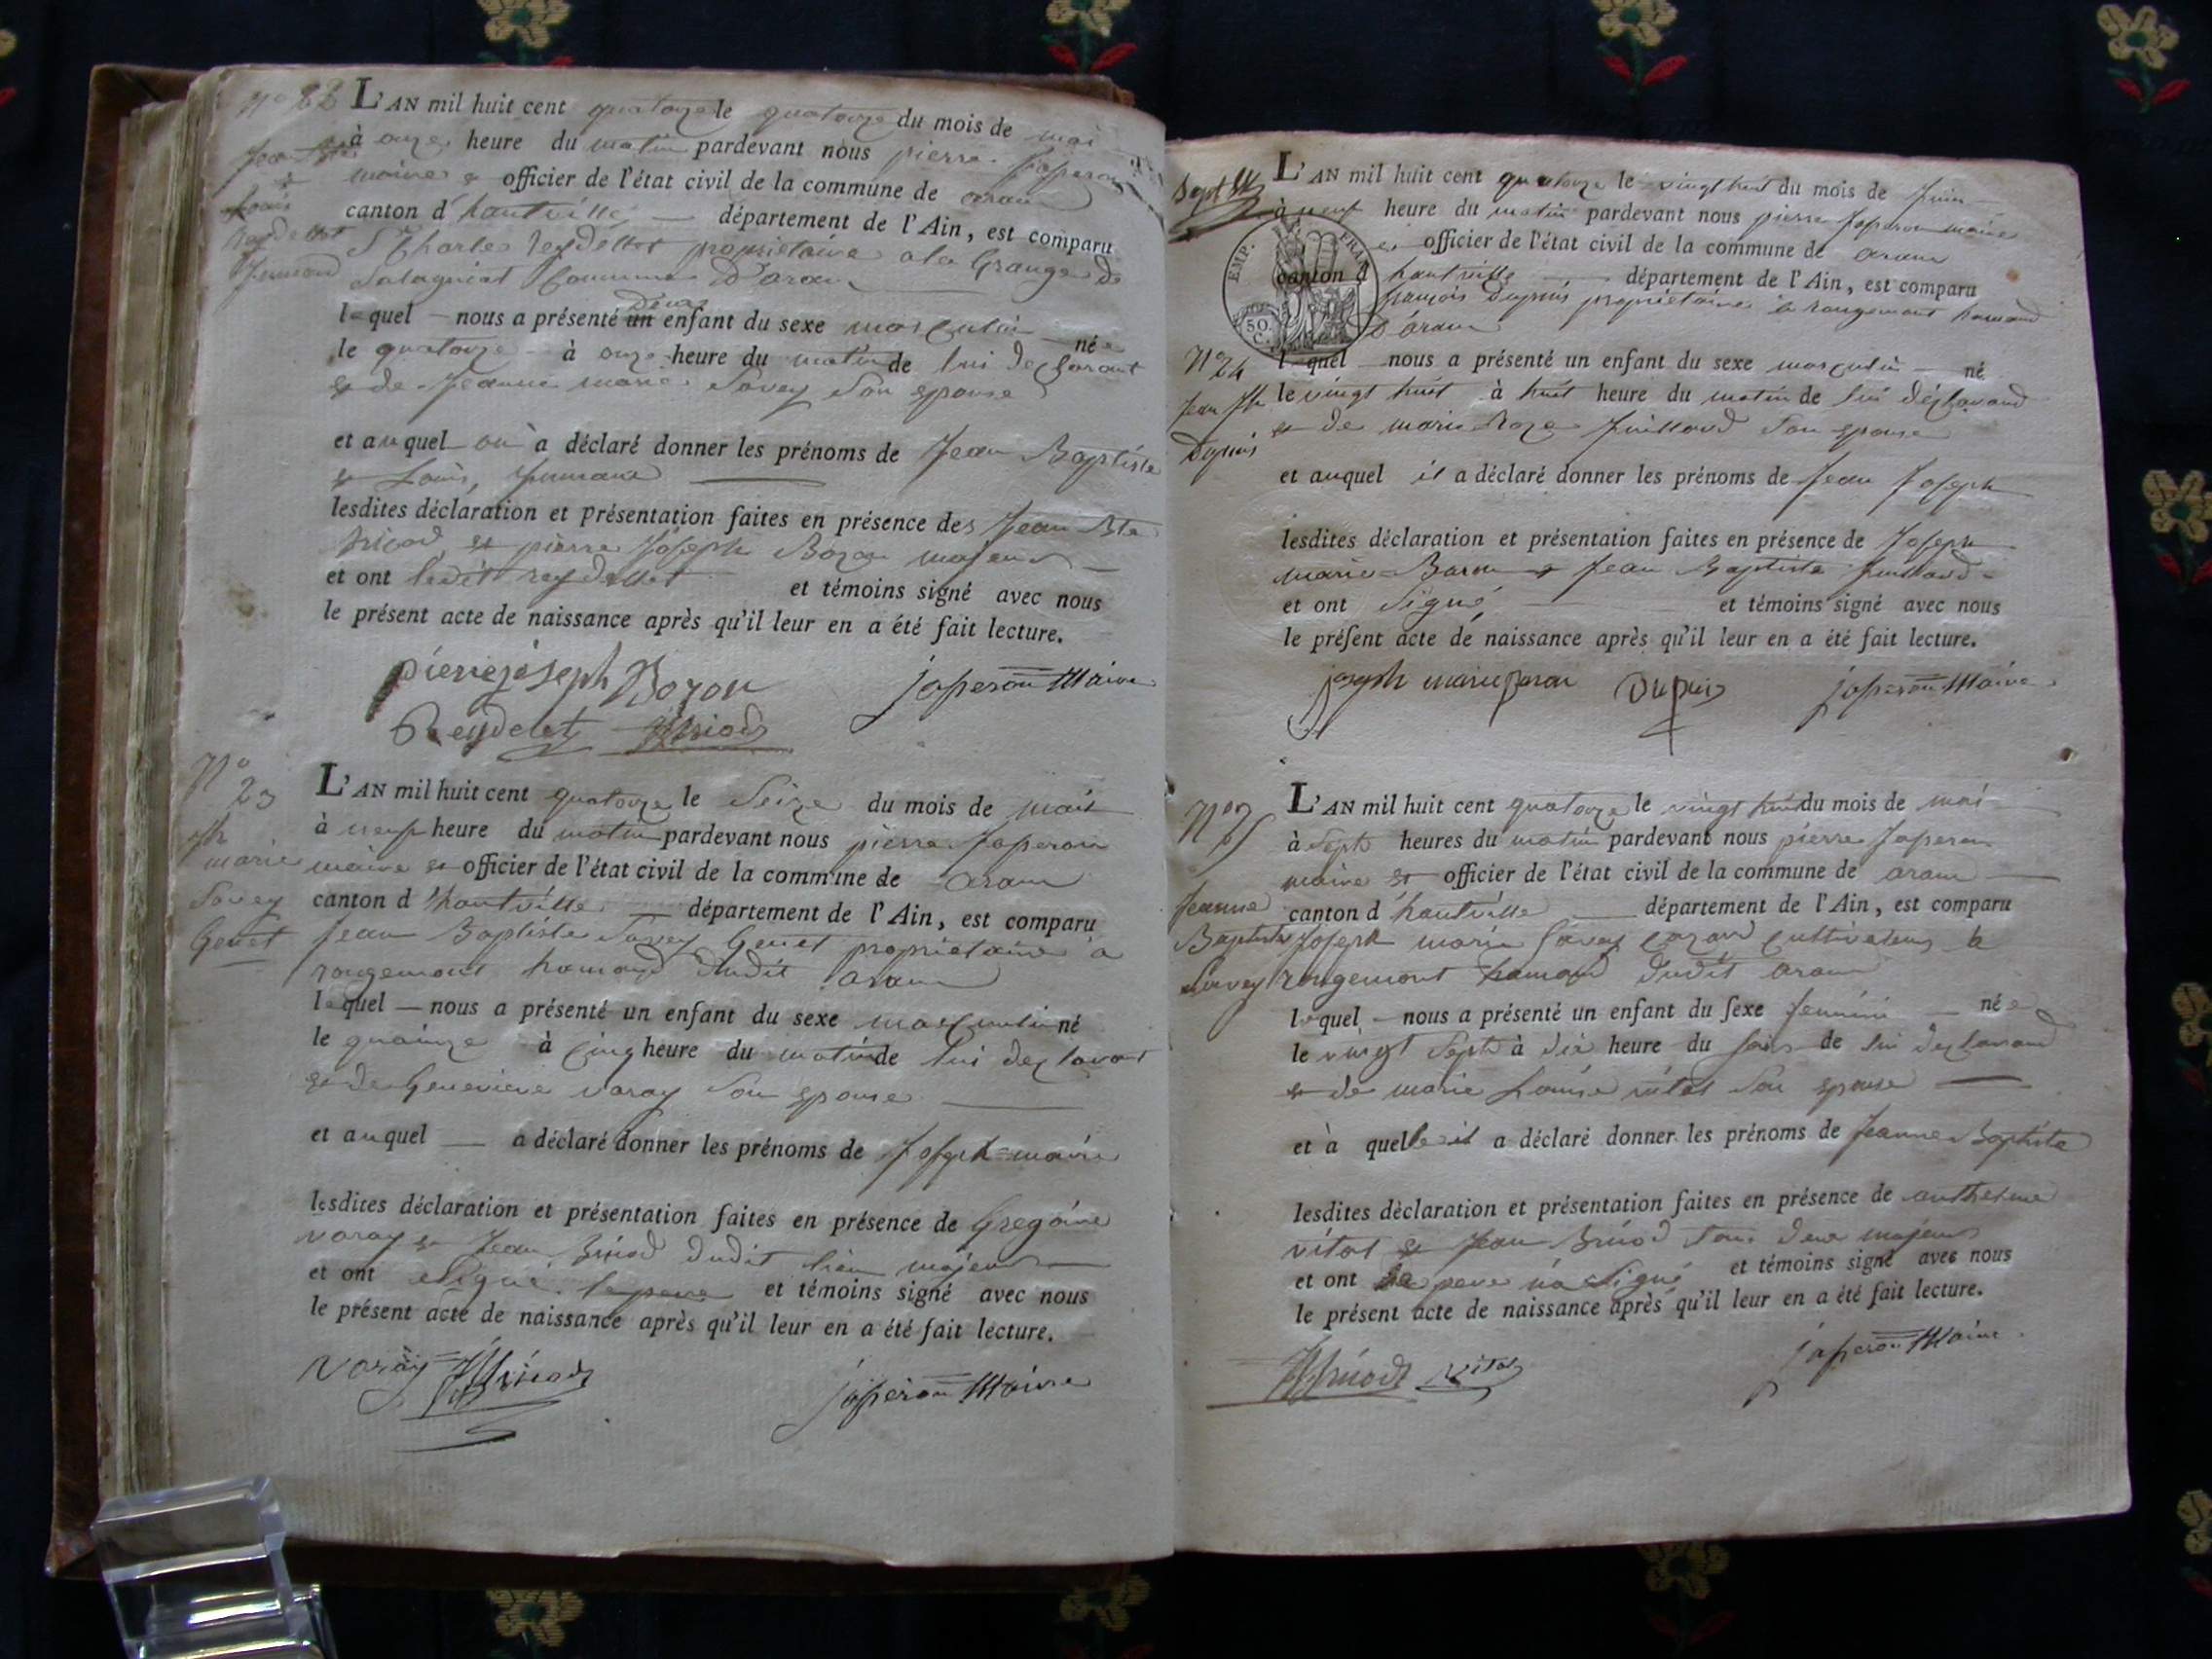 N° 22
Jean Bte
et
Louis
Reydellet
Jumeau
L'AN mil huit cent quatorze le quatorze du mois de mai
à onze heure du matin pardevant nous pierre Japeron
maire et officier de l'état civil de la commune de aran
canton d'hautville département de l'Ain, est comparu
Sr Charles reydellet propriétaire a la Grange de
Commune D'aran
lequel nous a présenté un deux enfant du sexe masculin né
le quatorze à onze heure du matin de lui declarant
et de Jeanne marie Savey Son epouse
et auquel on a déclaré donner les prénoms de Jean Baptiste
et Louis, Jumeaux
lesdites déclaration et présentation faites en présence des Jean Bte
Briod et pierre Joseph Bozon majeurs
et ont ledit reydellet et témoins signé avec nous
le présent acte de naissance après qu'il leur en a été fait lecture.
pierre joseph Bozon japeron Maire
Reydelet JBriod
N°
23
jh
marie
Savey
Genet
L'AN mil huit cent quatorze le Seize du mois de mai
à neuf heure du matin pardevant nous pierre Japeron
maire et officier de l'état civil de la commune de aran
canton d'hautville département de l'Ain, est comparu
Jean Baptiste Savey Genet propriétaire à
rougemont hamaud dudit aran
lequel nous a présenté un enfant du sexe masculin né
le quainze à cinq heure du matin de lui declarant
et de Genevieve varay Son epouse
et auquel a déclaré donner les prénoms de Joseph=marie
lesdites déclaration et présentation faites en présence de Gregoire
varay et Jean Briod dudit lieu majeurs
et ont signé le pere et témoins signé avec nous
le présent acte de naissance après qu'il leur en a été fait lecture.
Varay JBriod japeron Maire
Sept
EMP. FRAN
50.
C.
N° 24
Jean Jh
Dupuis
L'AN mil huit cent quatorze le vingt huit du mois de Juin
à neuf heure du matin pardevant nous pierre Japeron maire
et officier de l'état civil de la commune de aran
canton d hautville département de l'Ain, est comparu
françois Dupuis propriétaire à rougemont hamaud
D'aran
lequel nous a présenté un enfant du sexe masculin né
le vingt huit à huit heure du matin de lui déclarand
et de marie Roze Juilland Son epouse
et auquel il a déclaré donner les prénoms de Jean Joseph
lesdites déclaration et présentation faites en présence de Joseph
marie Baron et Jean Baptiste Juilland
et ont Signé et témoins signé avec nous
le présent acte de naissance après qu'il leur en a été fait lecture.
joseph marie Baron Dupuis japeron Maire
N° 25
Jeanne
Baptiste
Savey
L'AN mil huit cent quatorze le vingt huit du mois de mai
à Sept heures du matin pardevant nous pierre Japeron
maire et officier de l'état civil de la commune de aran
canton d'hautville département de l'Ain, est comparu
Joseph marie Savey cultivateur à
rougemont hamaud dudit aran
lequel nous a présenté un enfant du sexe feminin née
le vingt Sept à dix heure du soir de lui declarand
et de marie Louise vital Son epouse
et à quelle il a déclaré donner les prénoms de Jeanne Baptiste
lesdites déclaration et présentation faites en présence de anthelme
vital et Jean Briod tous deux majeurs
et ont le pere n'a Signé et témoins signé avec nous
le présent acte de naissance après qu'il leur en a été fait lecture.
JBriod Vital japeron Maire